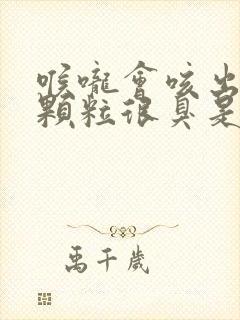 喉嚨會咳出
顆粒很臭是
禹千歲